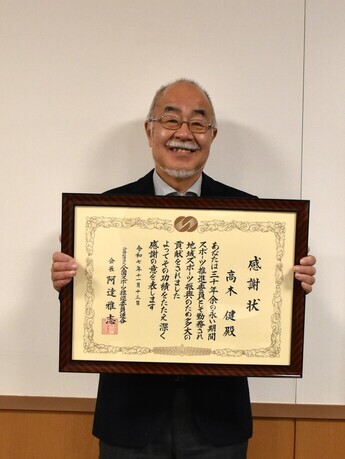 感謝状
高木 健殿
あなたは三十年余の永い期間
スポーツ推進委員として勤務され
地域スポーツ振興のため多大の
貢献をされました
よってその功績をたたえ深く
感謝の意を表します
令和七年十一月十三日
公益社団法人全国スポーツ推進委員連合
会長 阿達雅志